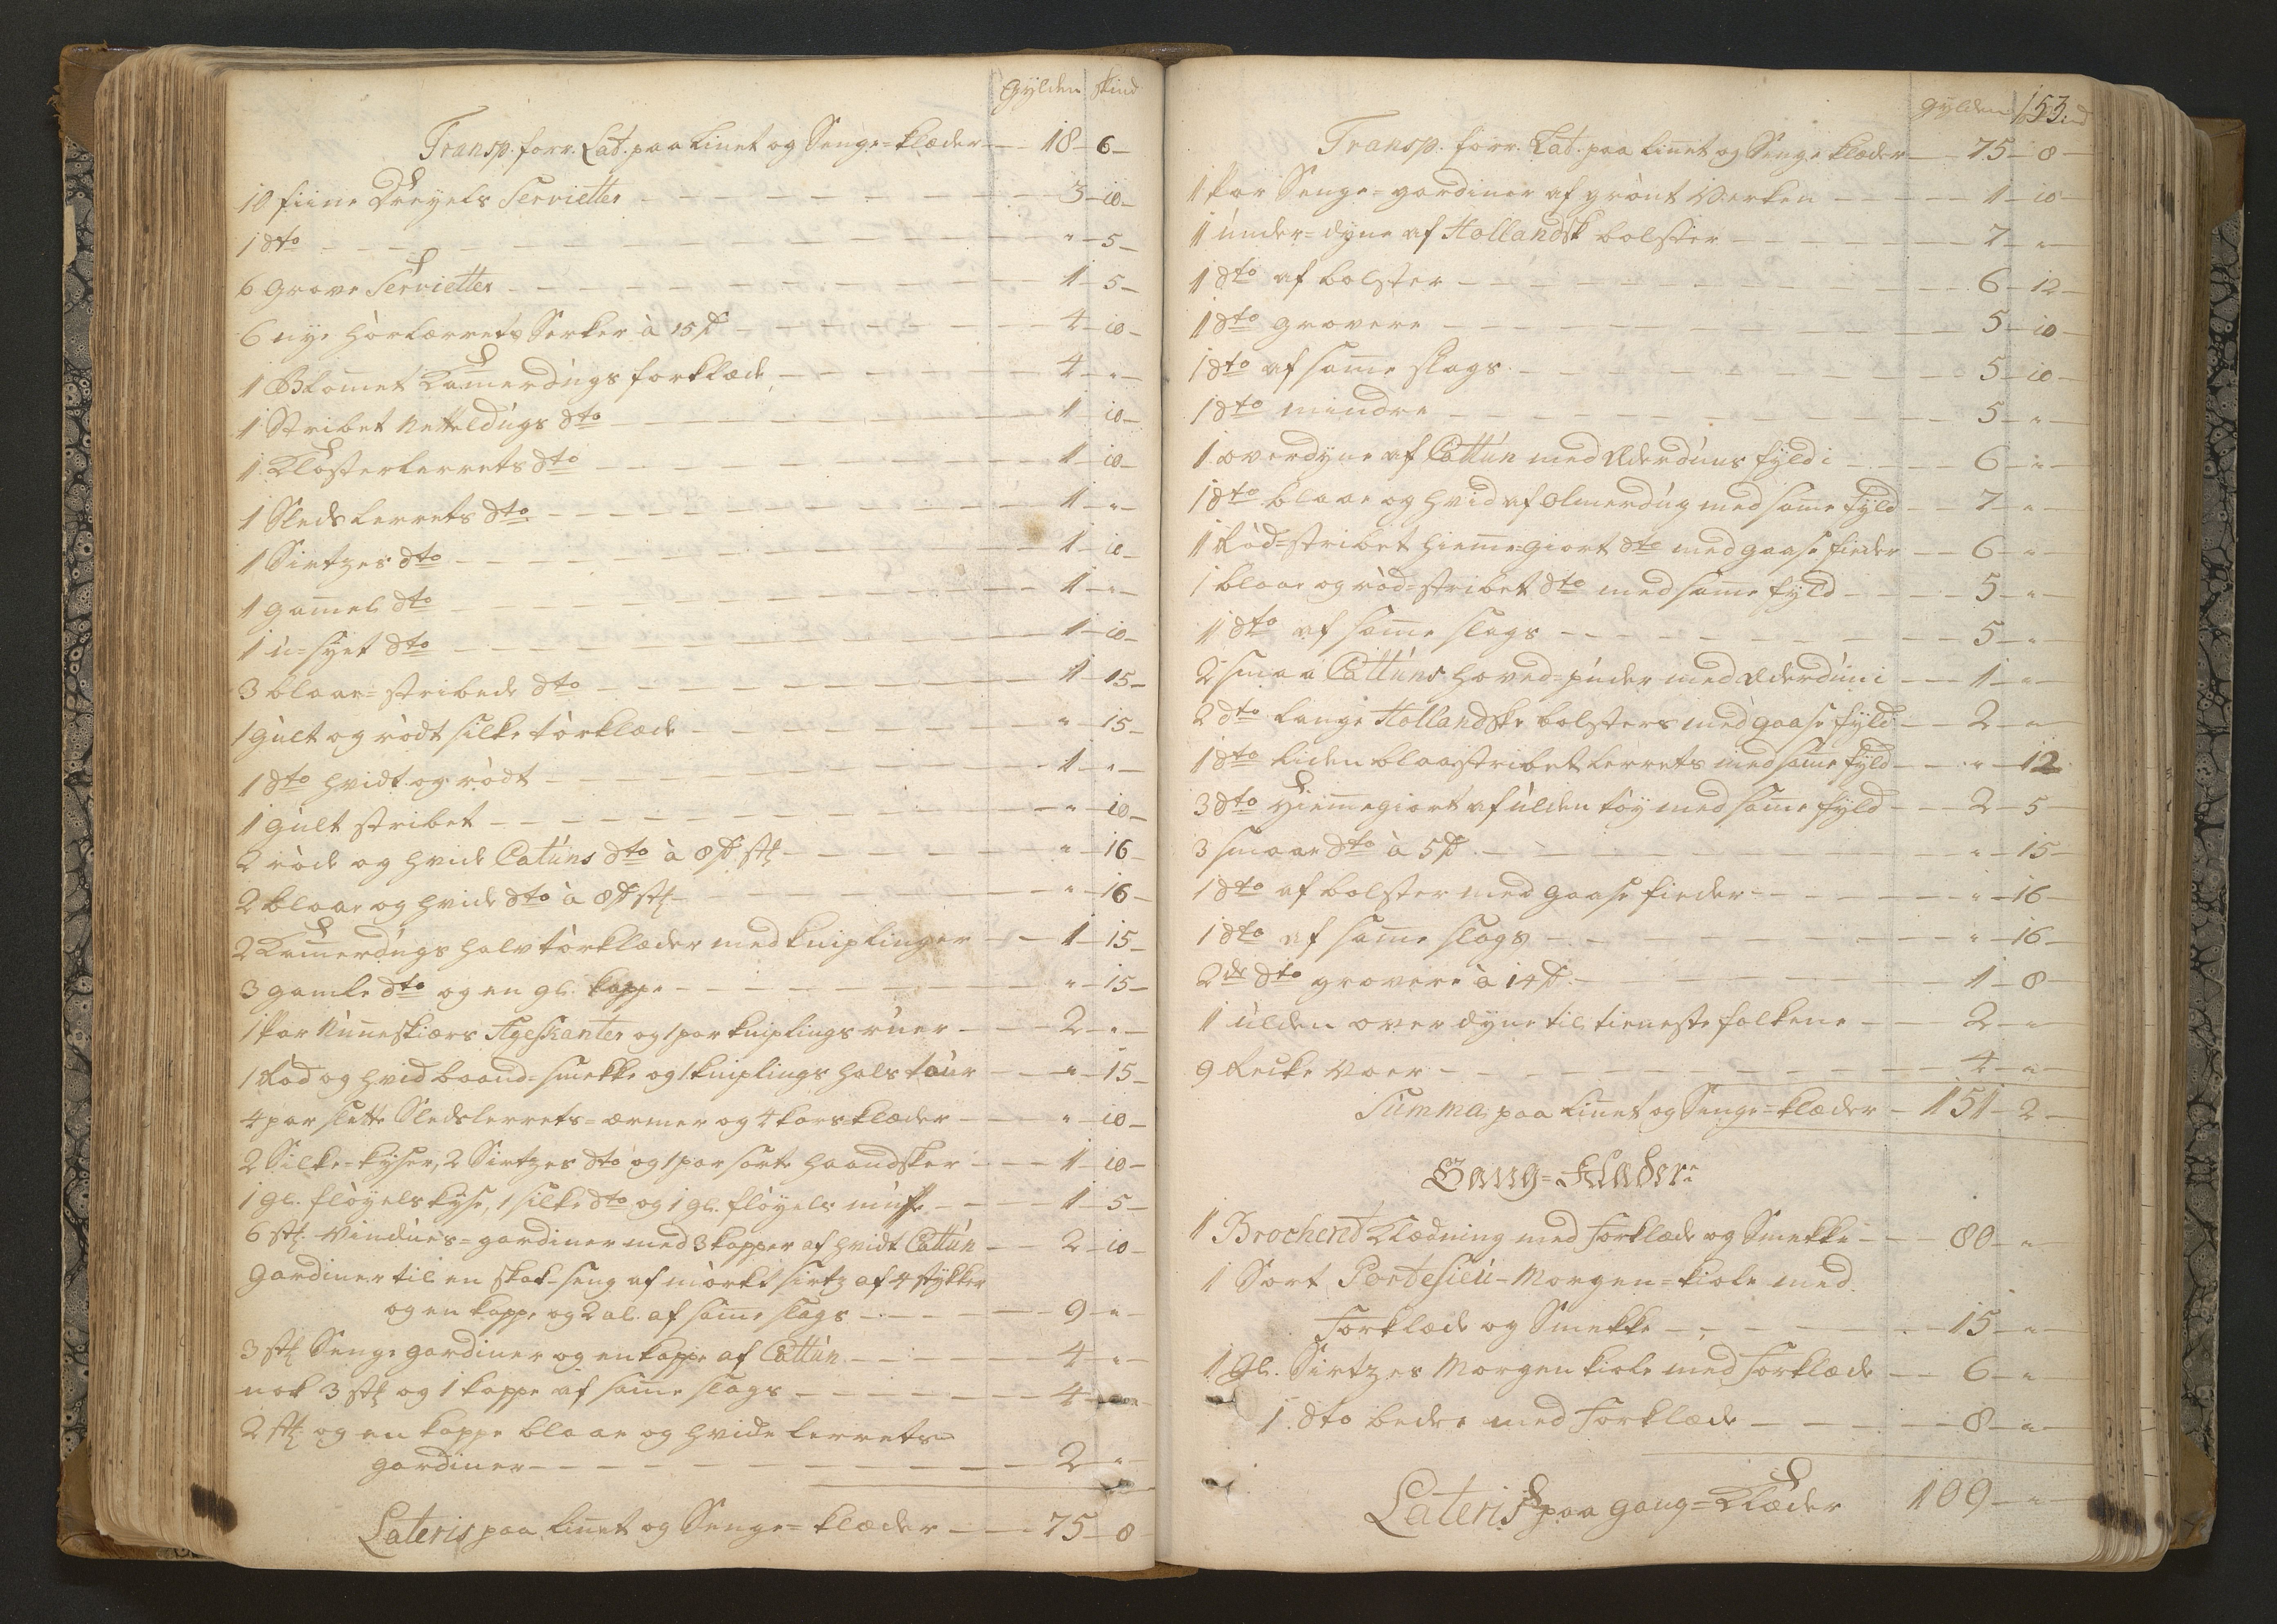 Gylden skind
Transp. forr. Lat. paa linet og Senge=klæder — 18 — 6 —
10 fiine Dreyels Servietter — 3 — 10 —
1 dto — " — 5 —
6 grove Servietter — 1 — 5 —
6 nye hörlærrets Serker à 15 ß — 4 — 10 —
1 Blomet Kamerdugs forklæde — 4 — " —
1 Stribet Netteldugs dto — 1 — 10 —
1 Klosterlerrets dto — 1 — 10 —
1 Sledslerrets dto — 1 — " —
1 Sirtzes dto — 1 — 10 —
1 gamel dto — 1 — " —
1 u=syet dto — 1 — 10 —
3 blaae=stribede dto — 1 — 15 —
1 gult og rödt silke törklæde — " — 15 —
1 dto hvidt og rödt — 1 — " —
1 gult stribet — " — 10 —
2 röde og hvide Catuns dto à 8 ß stk — " — 16 —
2 blaae og hvide dto à 8 ß stk — " — 16 —
2 Kamerdugs halvtörklæder med kniplinger — 1 — 15 —
3 gamle dto og en gl. kappe — " — 15 —
1 Par Nunneskiærs Ageskanter og 1 par kniplings ruer — 2 — " —
1 Röd og hvid baand=smekke og 1 kniplings halstour — " — 15 —
4 par slette Sledslerrets=ærmer og 4 korsklæder — " — 10 —
2 Silke=kyser, 2 Sirtzes dto og 1 par sorte haandsker — 1 — 10 —
1 gl. flöyels kyse, 1 silke dto og 1 gl. flöyels muffe — 1 — 5 —
6 stk. Vindues=gardiner med 3 kapper af hvidt Cattun — 2 — 10 —
Gardiner til en skak=seng af mörkt sirtz af 4 stykker
og en kappe og 2 al. af same slags — 9 — " —
3 stk Senge gardiner og en kappe af Cattun — 4 — " —
nok 3 stk og 1 kappe af same slags — 4 —
2 stk. og en kappe blaae og hvide lerrets
gardiner — 2 — " —
Lateris paa linet og Senge=klæder — 75 — 8
Gylden 153
Transp. forr. Lat. paa linet og Senge klæder — 75 — 8 —
1 Par Senge=gardiner af grönt Verken — 1 — 10 —
1 under=dyne af Hollandsk bolster — 7 — " —
1 dto af bolster — 6 — 12 —
1 dto grovere — 5 — 10 —
1 dto af same slags — 5 — 10 —
1 dto mindre — 5 — " —
1 overdyne af Cattun med Æderduns fyld i — 6 — " —
1 dto blaae og hvid af Olmerdug med same fyld — 7 — " —
1 Röd=stribet hieme=giort dto med gaase fieder — 6 — " —
1 blaae og röd=stribet dto med same fyld — 5 — " —
1 dto af same slags — 5 — " —
2 smaa Cattuns hoved=puder med Æderdun i — 1 — " —
2 dto lange Hollandske bolsters med gaase fyld — 2 — " —
1 dto liden blaastribet lerrets med same fyld — " — 12
3 dto Hiemegiort af ulden töy med same fyld — 2 — 5 —
3 smaae dto à 5 ß — " — 15 —
1 dto af bolster med gaase fieder — " — 16 —
1 dto af same slags — " — 16 —
2de dto grovere à 14 ß — 1 — 8 —
1 ulden over dyne til tienestefolkene — 2 — " —
9 Recke Voer — 4 — " —
Summa paa linet og Senge=klæder — 151 — 2 —
Gang=Klæder
1 Brochend Klædning med Forklæde og Smekke — 80 — "
1 Sort Portesieu=Morgen=kiole med
Forklæde og Smekke — 15 — "
1 gl. Sirtzes Morgen kiole med Forklæde — 6 — "
1 dto bedre med Forklæde — 8 — "
Lateris paa gang=Klæder 109 — "